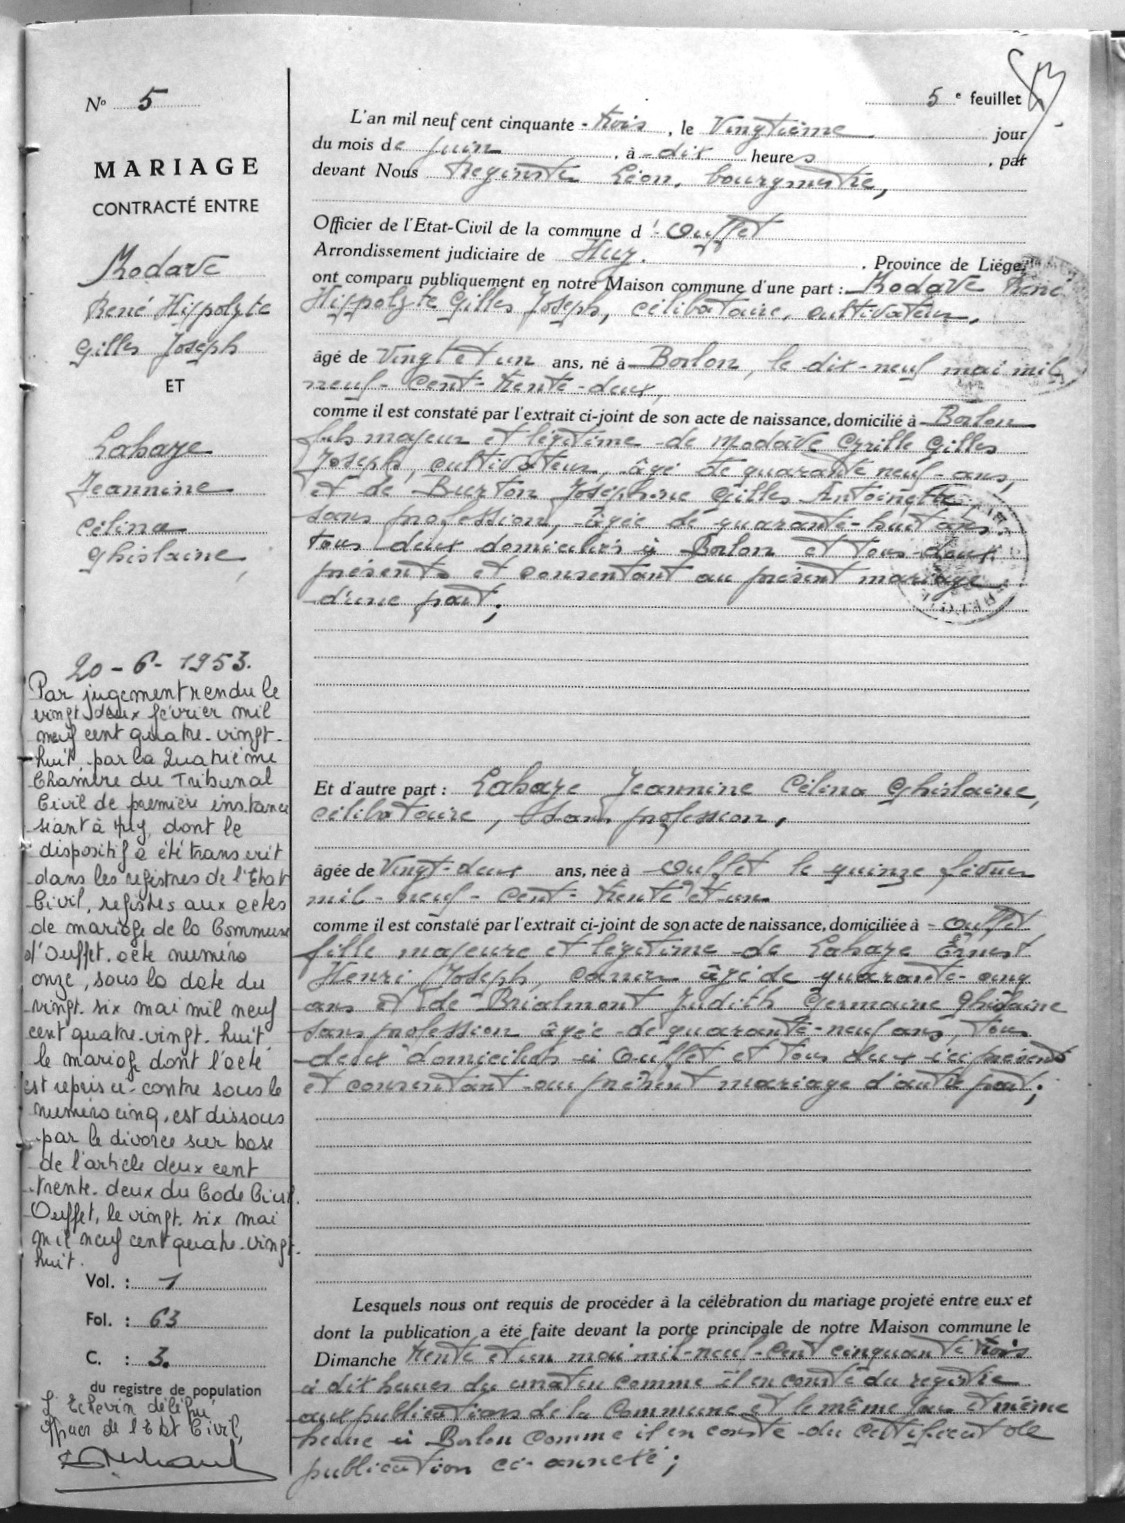 N° 5
MARIAGE
CONTRACTÉ ENTRE
Modave
René Hippolyte
Gilles Joseph
ET
Lahaye
Jeannine
Célina
Ghislaine,
20-6-1953.
Par jugement rendu le
vingt deux février mil
neuf cent quatre-vingt-
huit par la Quatrième
Chambre du Tribunal
Civil de première instance
séant à Huy, dont le
dispositif a été transcrit
dans les registres de l'Etat
Civil, registres aux actes
de mariage de la Commune
d'Ouffet, acte numéro
onze, sous la date du
vingt-six mai mil neuf
cent quatre-vingt-huit,
le mariage dont l'acte
est repris ci-contre sous le
numéro cinq, est dissous
par le divorce sur base
de l'article deux cent
trente-deux du Code Civil.
Ouffet, le vingt-six mai
mil neuf cent quatre-vingt-
huit.
Vol. : 1
Fol. : 63
C. : 3.
du registre de population
L'Echevin délégué
officier de l'Etat Civil,
5 e feuillet
L'an mil neuf cent cinquante-trois, le Vingtième jour
du mois de juin, à dix heures, par
devant Nous Léon, bourgmestre,
Officier de l'Etat-Civil de la commune d'Ouffet
Arrondissement judiciaire de Huy. Province de Liége,
ont comparu publiquement en notre Maison commune d'une part : Modave René
Hippolyte Gilles Joseph, célibataire, cultivateur,
âgé de Vingt et un ans, né à Borlon, le dix-neuf mai mil
neuf-cent-trente-deux,
comme il est constaté par l'extrait ci-joint de son acte de naissance, domicilié à Borlon
fils majeur et légitime de Modave Cyrille Gilles
Joseph, cultivateur, âgé de quarante neuf ans,
et de Burton Joséphine Gilles Antoinette
sans profession, âgée de quarante-huit ans
tous deux domiciliés à Borlon et tous deux
présents et consentant au présent mariage
d'une part;
Et d'autre part : Lahaye Jeannine Célina Ghislaine,
célibataire, sans profession,
âgée de Vingt-deux ans, née à Ouffet le quinze février
mil-neuf-cent-trente et un
comme il est constaté par l'extrait ci-joint de son acte de naissance, domiciliée à Ouffet
fille majeure et légitime de Lahaye Ernest
Henri Joseph, âgé de quarante-cinq
ans et de Brialmont Judith Germaine Ghislaine
sans profession âgée de quarante-neuf ans, tous
deux domiciliés à Ouffet et tous deux ici présents
et consentant au présent mariage d'autre part;
Lesquels nous ont requis de procéder à la célébration du mariage projeté entre eux et
dont la publication a été faite devant la porte principale de notre Maison commune le
Dimanche trente et un mai mil-neuf-cent cinquante trois
à dix heures du matin comme il en conste du registre
aux publications de la Commune et le même jour et même
heure à Borlon comme il en conste du certificat de
publication ci-annexé;